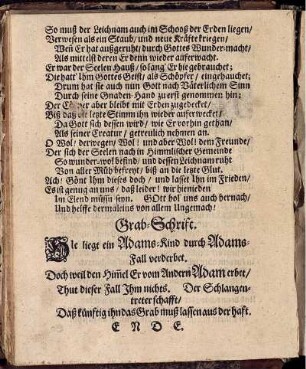 So muß der Leichnam auch im Schooß der Erden liegen/
Verwesen als ein Staub/ und neue Kräfte kriegen/
Weñ Er hat außgeruht/ durch Gottes Wunder-macht/
Als mittelst deren Er denn wieder auferwacht.
Er war der Seelen Hauß/ so lang Er hie gebrauchet;
Die hatt' Ihm Gottes Geist/ als Schöpfer/ eingehauchet;
Drum hat sie auch nun Gott nach Väterlichem Sinn
Durch seine Gnaden-Hand zu erst genommen hin:
Der Cörper aber bleibt mit Erden zugedecket/
Biß daß die letzte Stimm ihn wieder auferwecket/
Da Gott sich dessen wird/ wie Er vorhin gethan/
Als seiner Creatur/ getreulich nehmen an.
O Wol/ derwegen/ Wol/ und aber Wol! dem Freunde/
Der sich der Seelen nach in Himmlischer Gemeinde
So wunder-wol befind/ und dessen Leichnam ruht
Von aller Müh befreyt/ biß an die letzte Glut.
Ach/ Gönt Ihm dieses doch/ und lasset Ihn im Frieden/
Es ist genug an uns/ daß leider! wir hienieden
Im Elend müssen seyn. GOtt hol uns auch hernach/
Und helffe dermaleins von allem Ungemach!
Grab-Schrift.
Hie liegt ein Adams-Kind durch Adams-
Fall verderbet.
Doch weil den Him̃el Er vom Andern Adam erbet/
Thut dieser Fall Ihm nichts. Der Schlangen-
tretter schafft/
Daß künftig ihn das Grab muß lassen aus der haft.
E N D E.